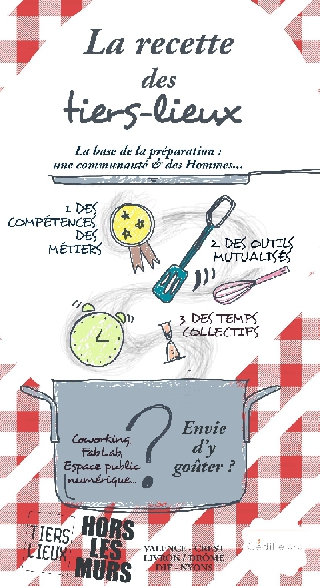 La recette
des
tiers-lieux
La base de la préparation :
une communauté & des Hommes...
1 DES
COMPÉTENCES
DES
MÉTIERS
2 DES OUTILS
MUTUALISÉS
3 DES TEMPS
COLLECTIFS
Coworking
FabLab,
Espace public
numérique...
?
Envie
d'y
goûter ?
TIERS
LIEUX
HORS
LES
MURS
VALENCE - CREST
LIVRON / DRÔME
DIE - NYONS